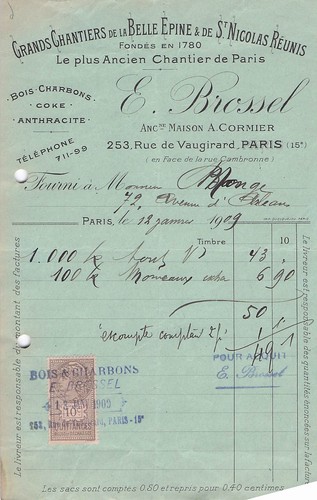 GRANDS CHANTIERS DE LA BELLE EPINE & DE ST NICOLAS RÉUNIS
FONDÉS EN 1780
Le plus Ancien Chantier de Paris
BOIS-CHARBONS
COKE
ANTHRACITE
TÉLÉPHONE
711-99
E. Brossel
ANCNE MAISON A. CORMIER
253, Rue de Vaugirard, PARIS (15e)
(en Face de la rue Cambronne)
Fourni à Monsieur
72, Avenue d'Orléans
PARIS, le 12 janvier 1909
Timbre 10
1.000 k 43
100 k 6 90
50
escompte comptant 2% 1
49 1
Le livreur est responsable du montant des factures
Le livreur est responsable des quantités énoncées sur la facture
BOIS & CHARBONS
E. BROSSEL
1909
253, PARIS-15e
10
POUR ACQUIT
E. Brossel
Les sacs sont comptés 0.60 et repris pour 0.40 centimes